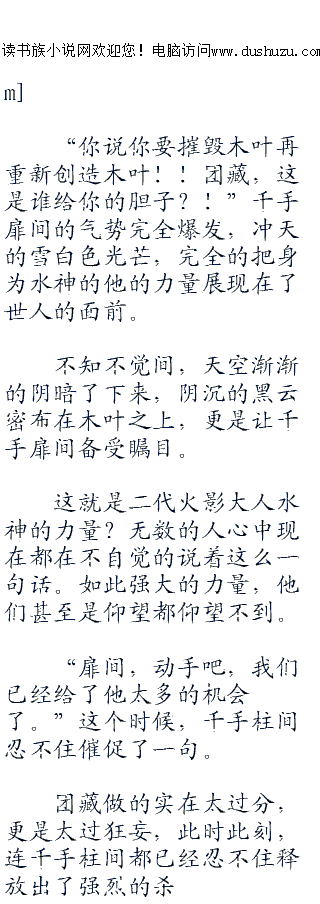 读书族小说网欢迎您！电脑访问www.dushuzu.com
m]
“你说你要摧毁木叶再
重新创造木叶！！团藏，这
是谁给你的胆子？！”千手
扉间的气势完全爆发，冲天
的雪白色光芒，完全的把身
为水神的他的力量展现在了
世人的面前。
不知不觉间，天空渐渐
的阴暗了下来，阴沉的黑云
密布在木叶之上，更是让千
手扉间备受瞩目。
这就是二代火影大人水
神的力量？无数的人心中现
在都在不自觉的说着这么一
句话。如此强大的力量，他
们甚至是仰望都仰望不到。
“扉间，动手吧，我们
已经给了他太多的机会
了。”这个时候，千手柱间
忍不住催促了一句。
团藏做的实在太过分，
更是太过狂妄，此时此刻，
连千手柱间都已经忍不住释
放出了强烈的杀